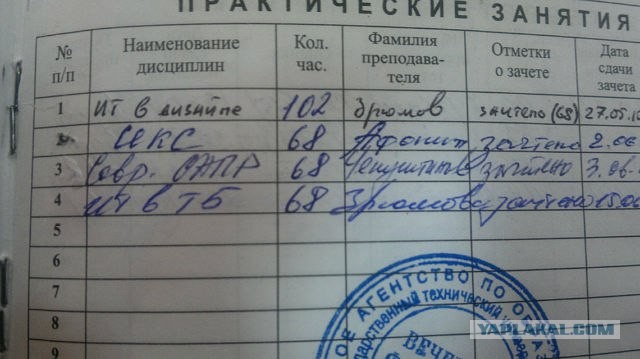 ПРАКТИЧЕСКИЕ ЗАНЯТИЯ
№ п/п Наименование дисциплин Кол. час. Фамилия преподава- теля Отметки о зачете Дата сдачи зачета
1 ИТ в дизайне 102 Зрюмов зачтено (68) 27.05.10
2 ИКС 68 Афонин зачтено 2.06
3 Совр. САПР 68 зачтено 3.06
4 ИТ в ТБ 68 Зрюмова зачтено 15.06
5
6
7
8
9
ОЕ АГЕНТСТВО ПО ОБРА
дарственный технический
ВЕЧЕ
YAPLAKAL.COM